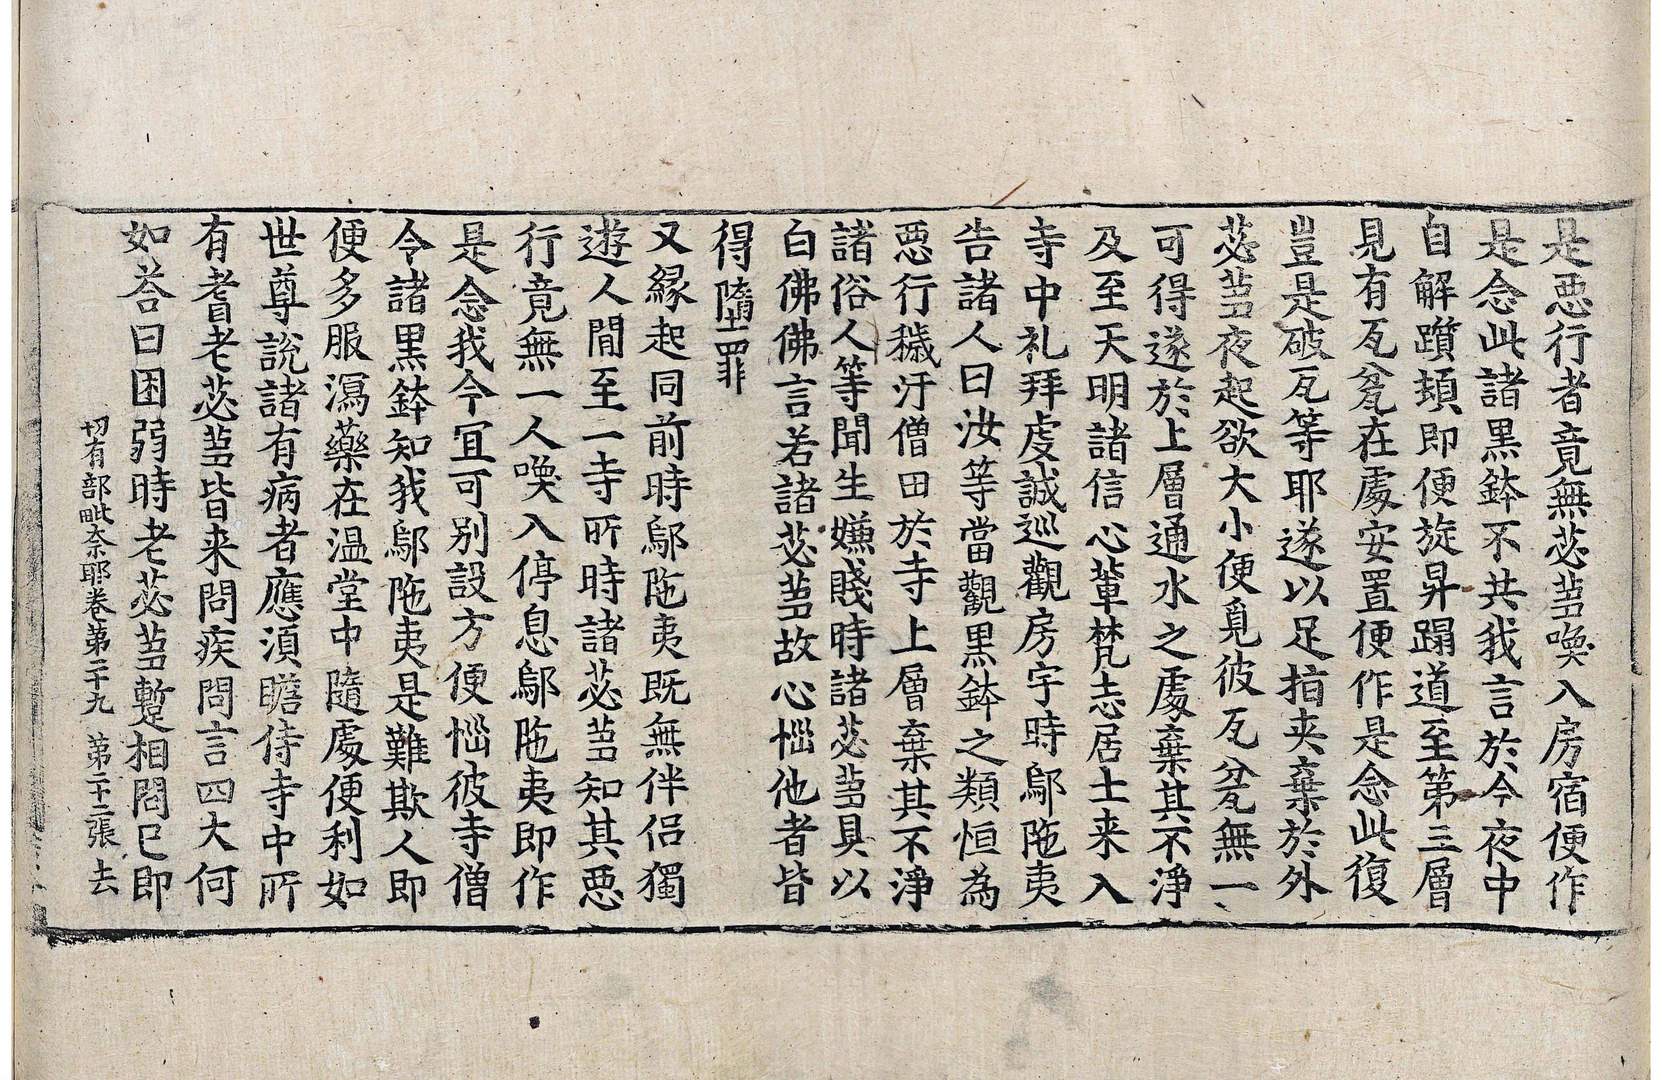 是惡行者竟無苾芻喚入房宿便作
是念此諸黑鉢不共我言於今夜中
自解躓頓即便旋昇蹋道至第三層
見有瓦瓮在處安置便作是念此復
豈是破瓦等耶遂以足指夾棄於外
苾芻夜起欲大小便覓彼瓦瓮無一
可得遂於上層通水之處棄其不淨
及至天明諸信心輩梵志居士来入
寺中礼拜虔誠巡觀房宇時鄔陁夷
告諸人曰汝等當觀黒鉢之類恒為
惡行穢汙僧田於寺上層棄其不淨
諸俗人等聞生嫌賤時諸苾芻具以
白佛佛言若諸苾芻故心惱他者皆
得墮罪
又緣起同前時鄔陁夷既無伴侶獨
遊人間至一寺所時諸苾芻知其惡
行竟無一人喚入停息鄔陁夷即作
是念我今冝可别設方便惱彼寺僧
令諸黒鉢知我鄔陁夷是難欺人即
便多服瀉藥在温堂中隨處便利如
世尊說諸有病者應湏瞻侍寺中所
有耆老苾芻皆来問疾問言四大何
如荅曰困弱時老苾芻蹔相問已即
切有部毗奈耶卷第二十九　第二十二張　去